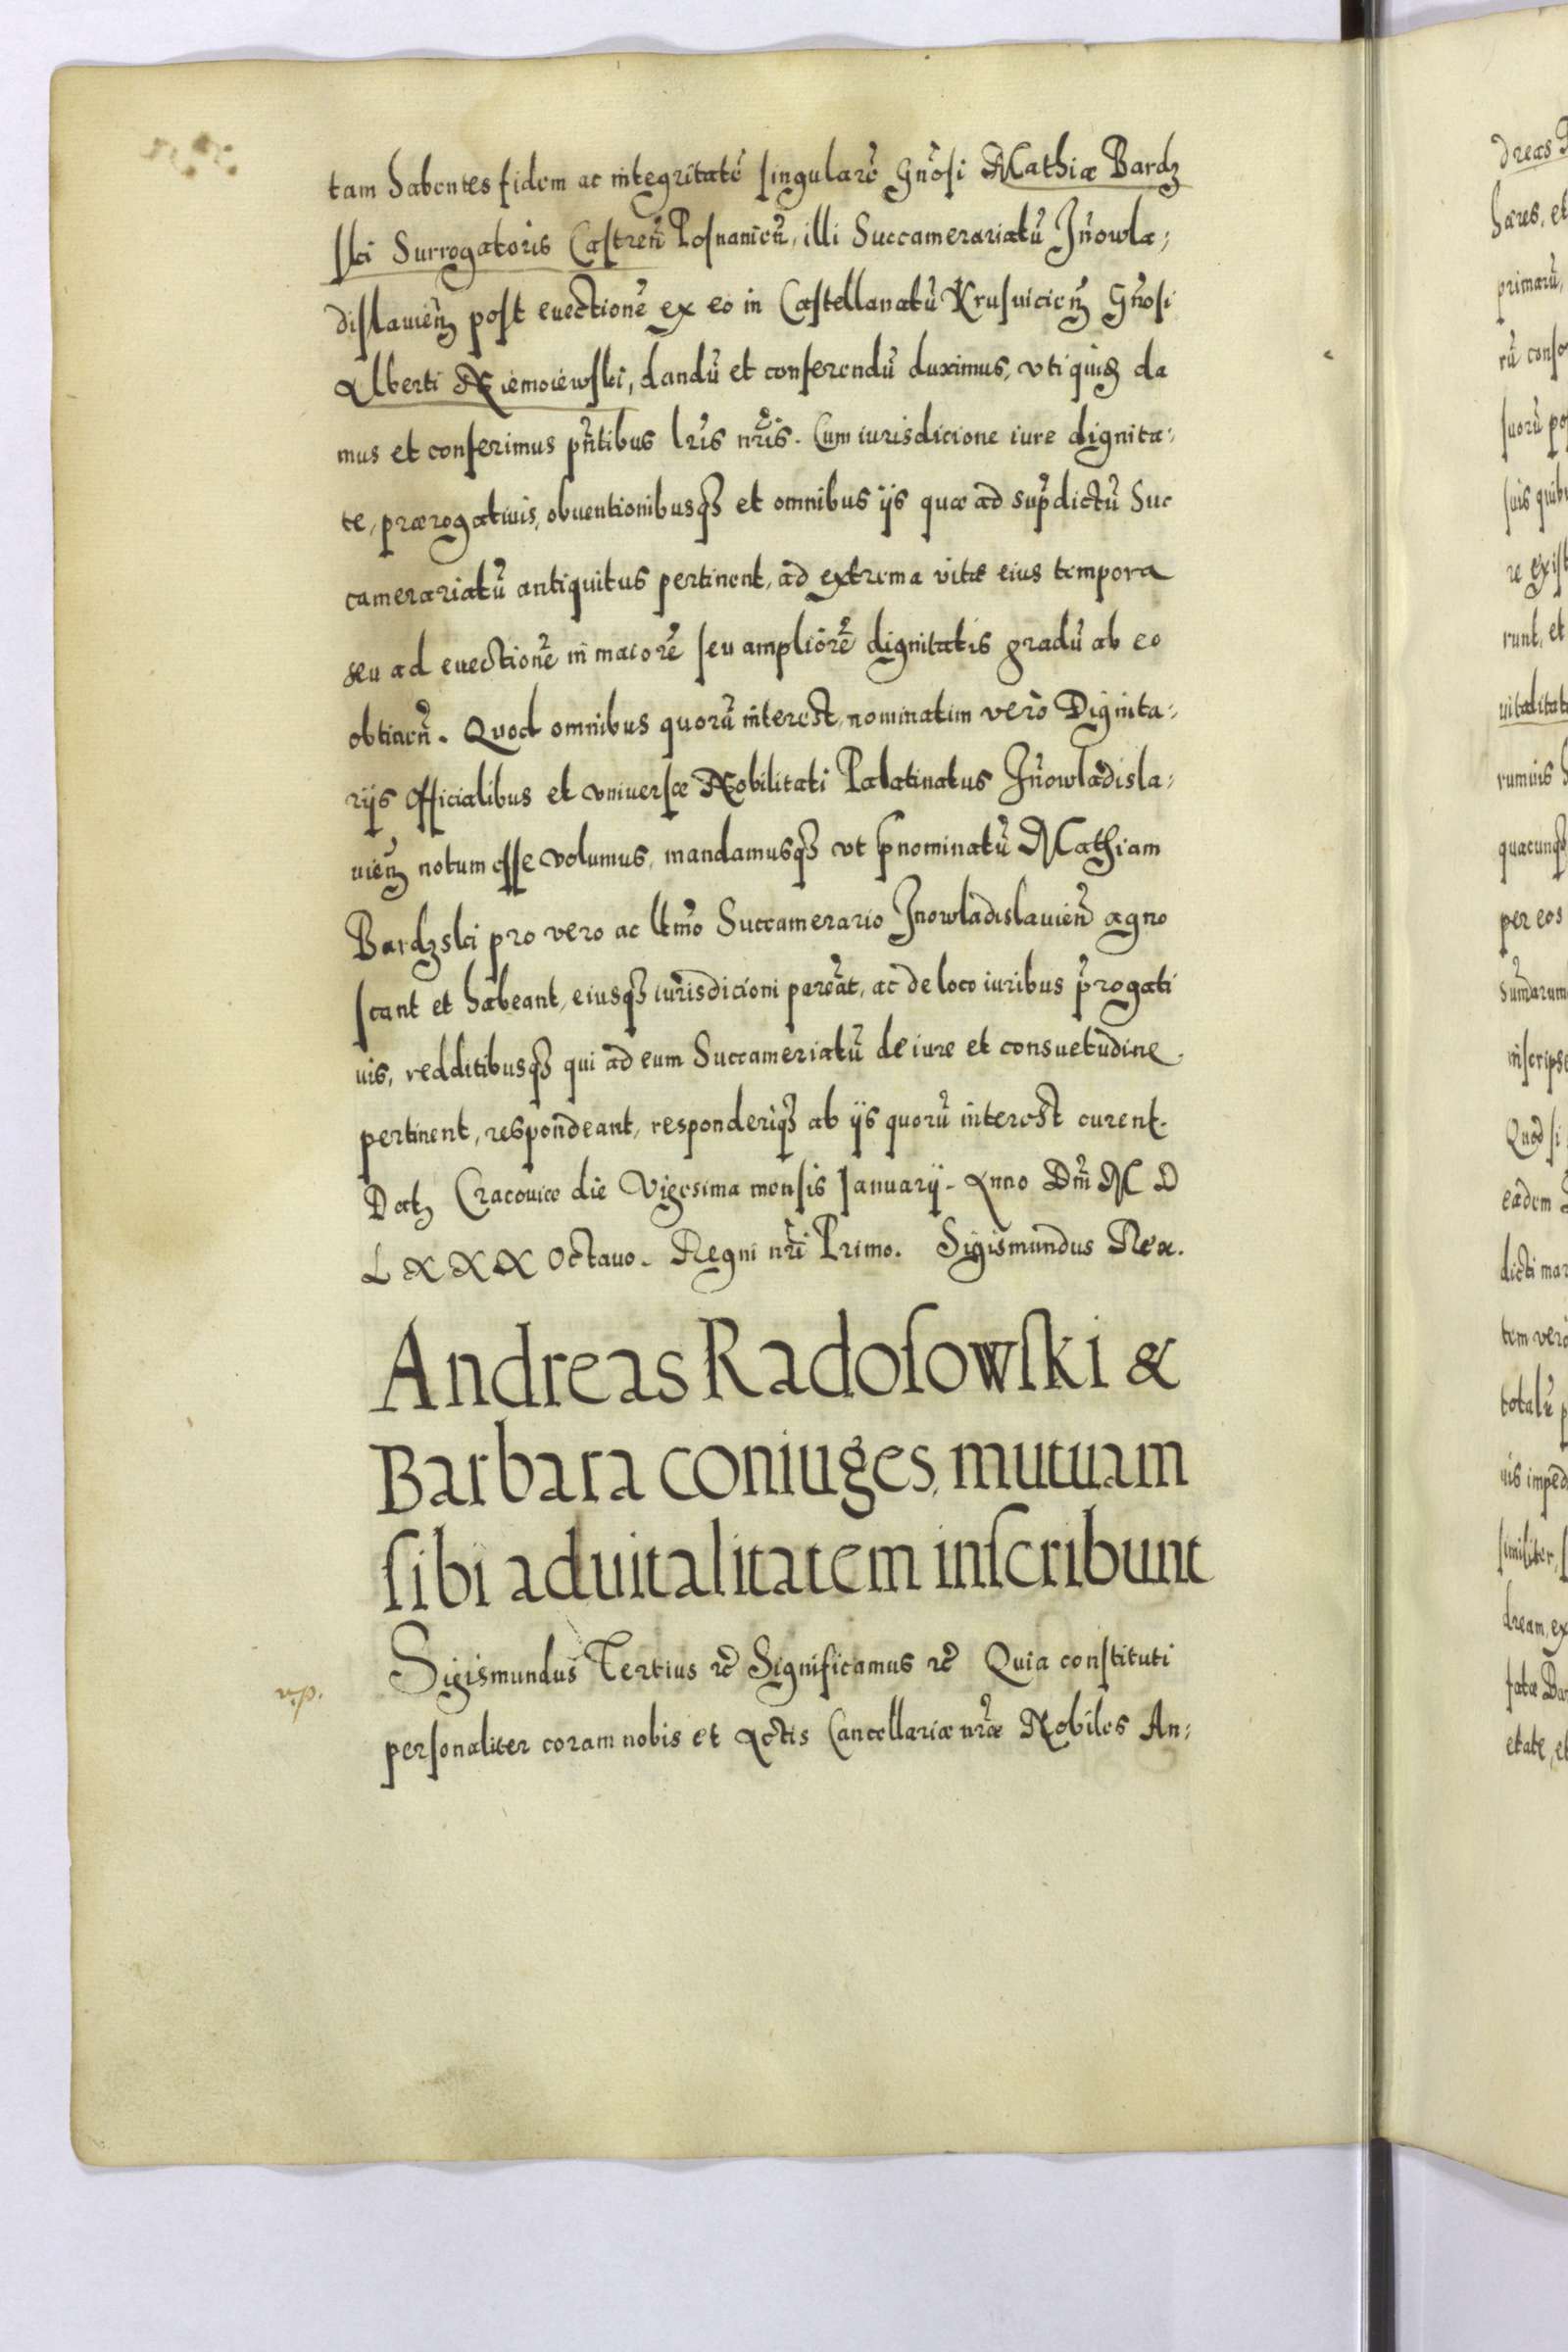 tam habentes fidem ac integritatẽ singularẽ Gñosi Mathiæ Bardz
ski Surrogatoris Castreñ Posnanieñ, illi Succamerariatũ Jnowla=
dislavieñ post evectionẽ ex eo in Castellanatũ Krusvicieñ Gñosi
Alberti Niemoiewski, dandũ et conferendũ duximus, uti quidẽ da
mus et conferimus pñtibus lr̃is nr̃is. Cum iurisdicione iure dignita=
te, prærogativis, obventionibusqȝ et omnibus ijs quæ ad sup̃dictũ Suc
camerariatũ antiquitus pertinent, ad extrema vitæ eius tempora
seu ad evectionẽ in maiorẽ seu ampliorẽ dignitatis gradũ ab eo
obtineñ. Quod omnibus quorũ interest, nominatim verò Dignita=
rijs Officialibus et universæ Nobilitati Palatinatus Jnowladisla=
vieñ notum esse volumus, mandamusqȝ ut p̃nominatũ Mathiam
Bardzski pro vero ac ltm̃o Succamerario Jnowladislavieñ agno
scant et habeant, eiusqȝ iurisdicioni pareãt, ac de loco iuribus p̃rogati
vis, redditibusqȝ qui ad eum Succameriatũ de iure et consuetudine
pertinent, respondeant, responderiqȝ ab ijs quorũ interest curent.
Datȝ Cracoviæ die Vigesima mensis Januarij. Anno Dñi M D
L X X X Octavo. Regni nr̃i Primo. Sigismundus Rex.
Andreas Radosowski &
Barbara coniuges, mutuam
sibi advitalitatem inscribunt
Sigismundus Tertius &c̃ Significamus &c̃ Quia constituti
personaliter coram nobis et Actis Cancellariæ nr̃æ Nobiles An=